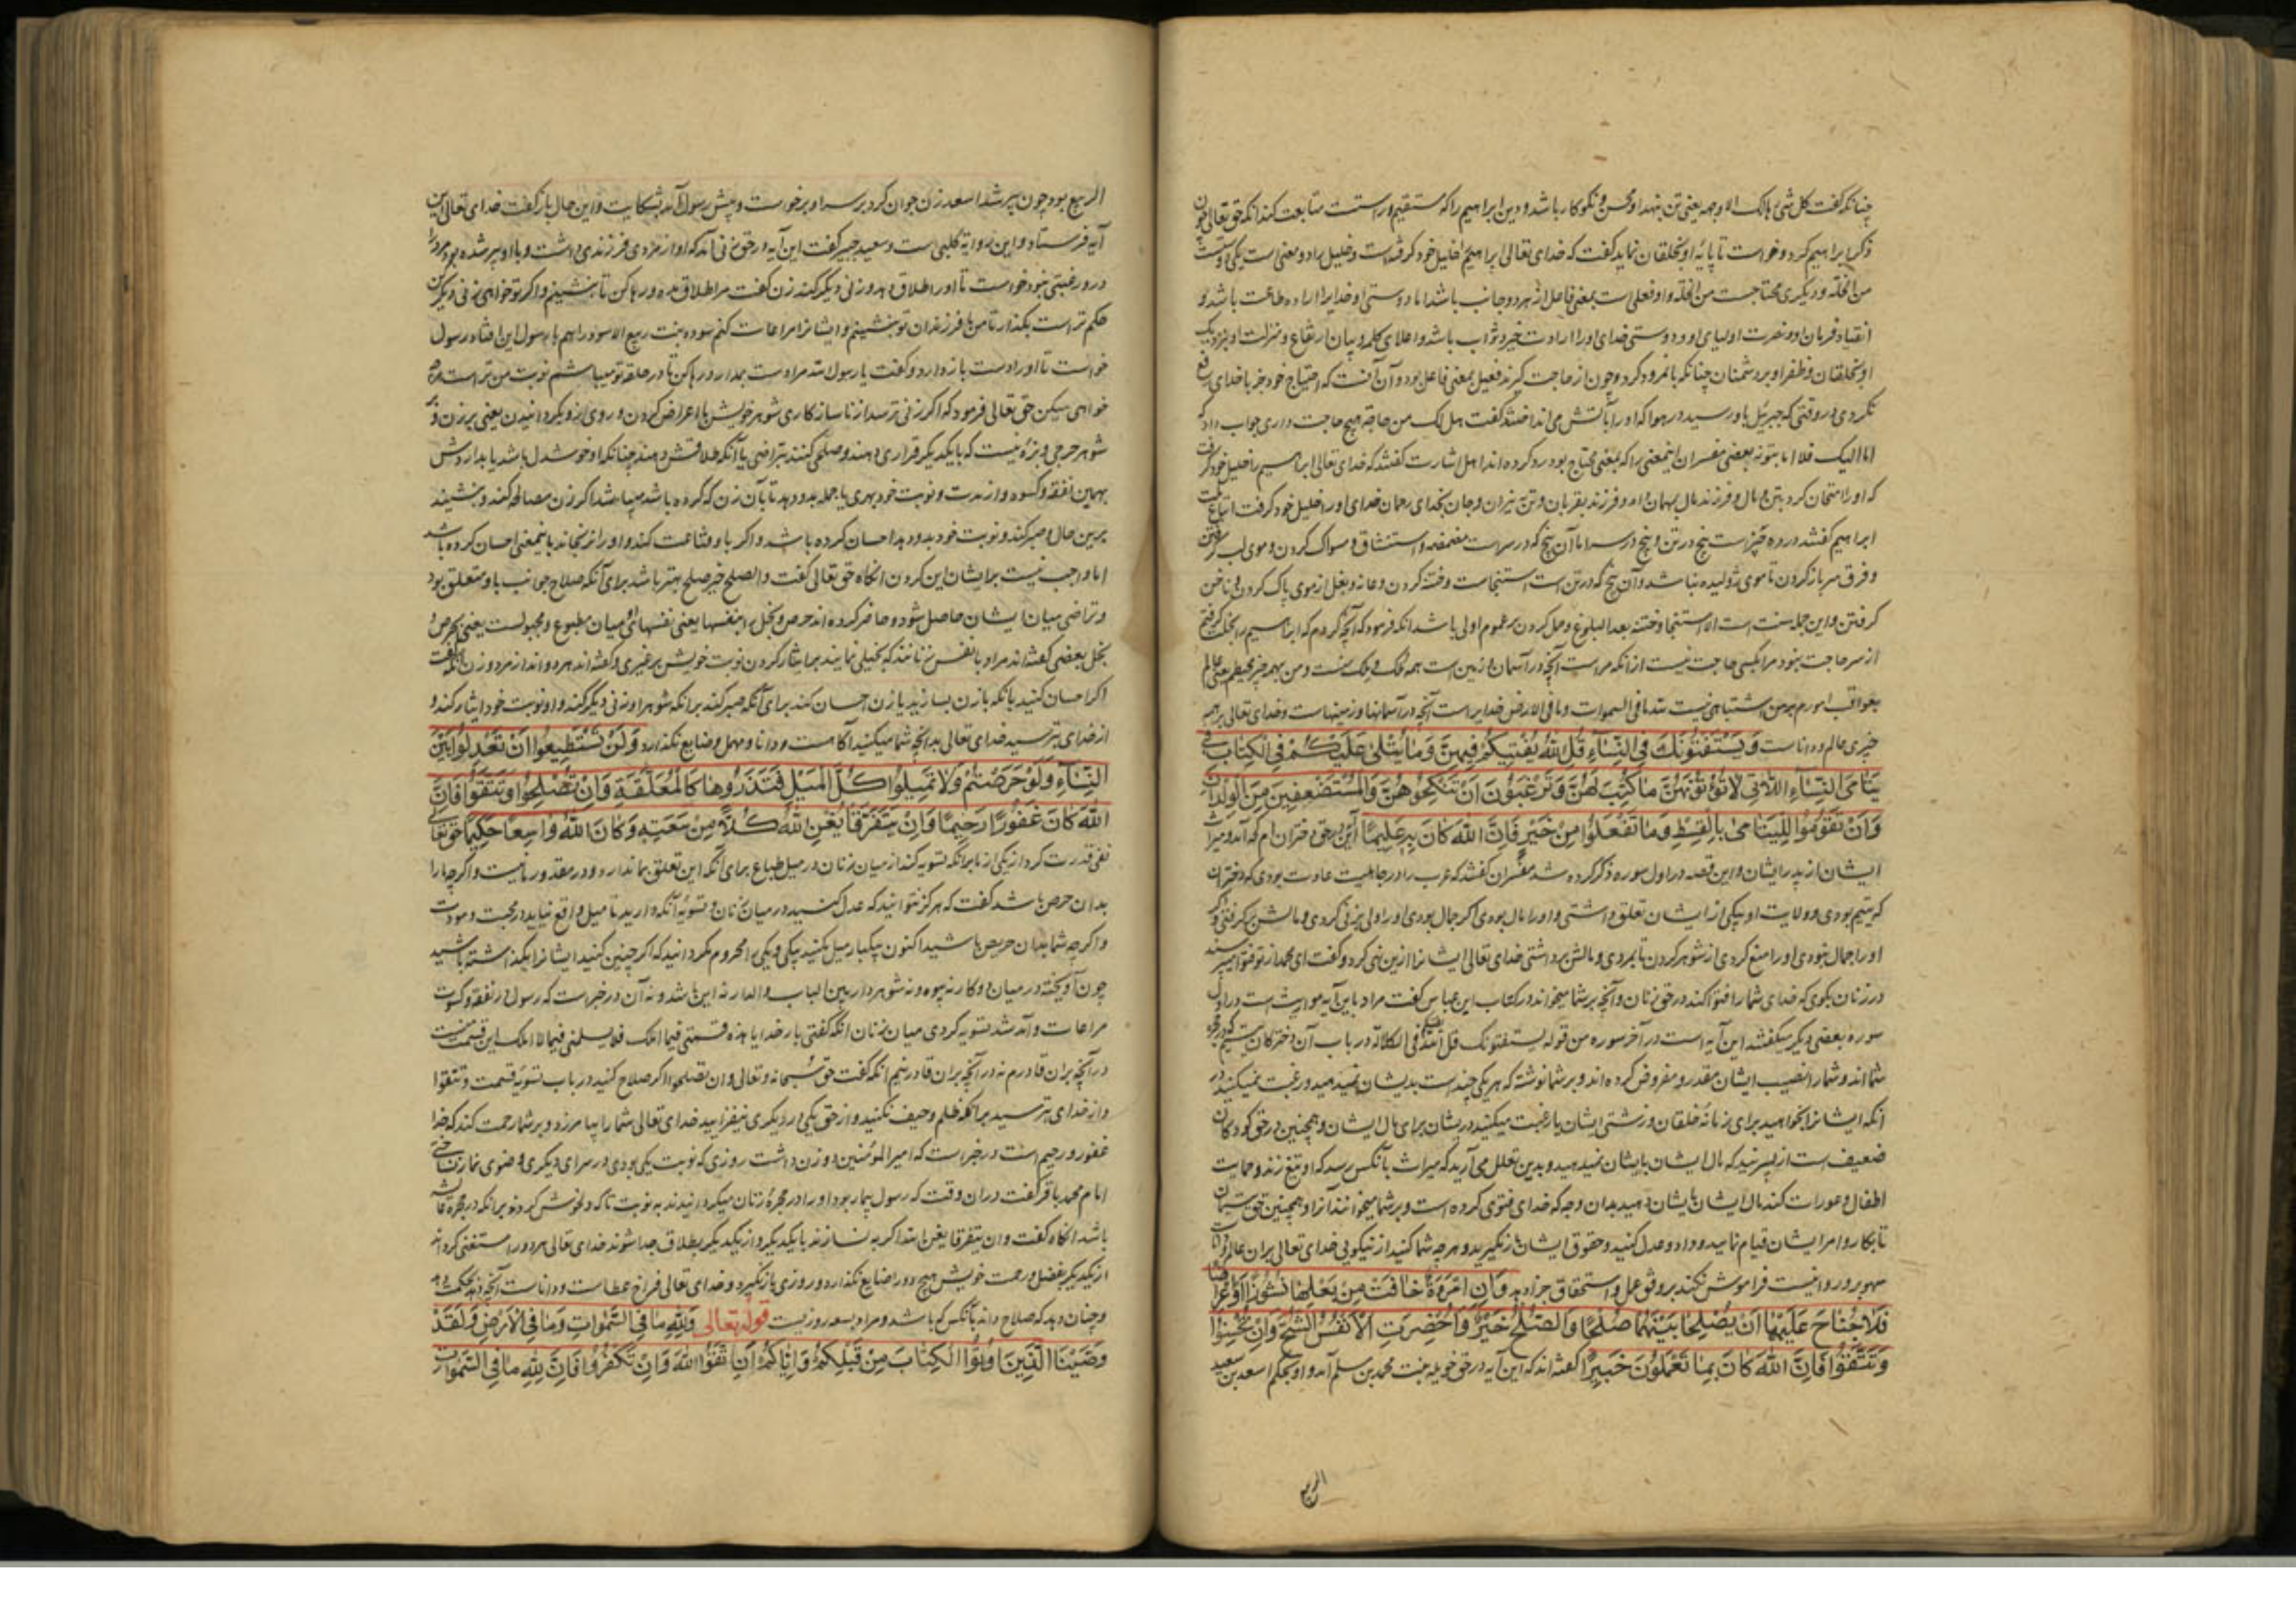 چنانکه گفت کل شئ هالک الا وجهه یعنی تن بنهد او محسن و نکوکار باشد و دین ابراهیم را که مستقیم و راستست متابعت کند آنکه حق تعالی چون
ذکر ابراهیم کرد و خواست تا پایهٔ او بخلقان نماید گفت که خدای تعالی ابراهیم را خلیل خود گرفته است و خلیل را دو معنی است یکی دوست
من الخلة و دیگری محتاجست من الخلة و او فعلی است بمعنی فاعل از هر دو جانب باشد اما دوستی او خدایرا اراده طاعت باشد و
انقیاد فرمان او و نصرت اولیای او و دوستی خدای او را ارادت خیر و ثواب باشد و اعلای کلمه و بیان ارتفاع و منزلت او بنزدیک
او بخلقتان و ظفر او بر دشمنان چنانکه با نمرود کرد و چون از حاجت گیرند فعیل بمعنی فاعل بود و آن آنست که احتیاج خود جز با خدای رفع
نکردی در وقتی که جبرئیل باو رسید در هوا که او را بآتش می انداختند گفت هل لک من حاجة هیچ حاجت داری جواب داد که
اما الیک فلا اما بتو نه بعضی مفسران این معنی را که بمعنی محتاج بود رد کرده اند اهل اشارت گفتند که خدای تعالی ابراهیم را خلیل خود گرفت
که او را امتحان کرد بتن و مال و فرزند مال بمهمان داد و فرزند بقربان و تن بنیران و جان بخدای رحمان خدای او را خلیل خود گرفت اتباع ملت
ابراهیم گفتند در ده چیز است پنج در تن و پنج در سر اما آن پنج که در سر است مضمضه و استنشاق و مسواک کردن و موی لب گرفتن
و فرق سر باز کردن تا موی ژولیده نباشد و آن پنج که در تن است استنجاست و ختنه کردن و عانه و بغل از موی پاک کردن و ناخن
گرفتن و این جمله سنت است الا استنجا و ختنه بعد البلوغ و حمل کردن بر عموم اولی باشد آنکه فرمود که آنچه کردم که ابراهیم را بخلت گرفتم
از سر حاجت نبود مرا بکسی حاجت نیست از آنکه مراست آنچه در آسمان و زمین است همه ملک و ملک منست و من بهمه چیز محیطم یعنی عالم
بعواقب امورم بر من اشتباهی نیست لله ما فی السموات و ما فی الارض خدایراست آنچه در آسمانها و زمینهاست و خدای تعالی بر همه
چیزی عالم و داناست وَيَسْتَفْتُونَكَ فِي النِّسَآءِ قُلِ اللّٰهُ يُفْتِيكُمْ فِيهِنَّ وَمَا يُتْلٰى عَلَيْكُمْ فِي الْكِتَابِ فِي
يَتَامَى النِّسَآءِ اللَّاتِي لَا تُؤْتُونَهُنَّ مَا كُتِبَ لَهُنَّ وَتَرْغَبُونَ اَنْ تَنْكِحُوهُنَّ وَالْمُسْتَضْعَفِينَ مِنَ الْوِلْدَانِ
وَاَنْ تَقُومُوا لِلْيَتَامٰى بِالْقِسْطِ وَمَا تَفْعَلُوا مِنْ خَيْرٍ فَاِنَّ اللّٰهَ كَانَ بِهِ عَلِيمًا این در حق دختران ام که آمد و میراث
ایشان از پدر ایشان و این قصه در اول سوره ذکر کرده شد مفسران گفتند که عرب را در جاهلیت عادت بودی که دختران
که یتیم بودی و ولایت او بیکی از ایشان تعلق داشتی و او را مال بودی اگر جمال بودی او را ولی بزنی کردی و مالش برگرفتی و اگر
او را جمال نبودی او را منع کردی از شوهر کردن تا بمردی و مالش برداشتی خدای تعالی ایشانرا ازین نهی کرد و گفت ای محمد از تو فتوا میپرسند
در زنان بگوی که خدای شما را فتوا کند در حق زنان و آنچه بر شما میخواند در کتاب ابن عباس گفت مراد باین آیه مواریث است در اول
سوره بعضی دیگر میگفتند این آیه است در آخر سوره من قوله یستفتونک قل الله یفتیکم فی الکلالة در باب آن دخترکان یتیم که در حجره
شمااند و شما را نصیب ایشان مقدر و مفروض کرده اند و بر شما نوشته که هر یکی چند است بدیشان نمیدهید و رغبت نمیکنید در
آنکه ایشانرا بخواهید برای
ضعیف است از پسر نیند که مال ایشان بایشان نمیدهید و بدین تعلل می آرید که میراث بآنکس رسد که او تیغ زند و حمایت
اطفال و عورات کند مال ایشان بایشان دهید بدان وجه که خدای فتوی کرده است و بر شما میخوانند آنرا و همچنین حق یتیمان
تا بکار و امر ایشان قیام نمایید و داد و عدل کنید و حقوق ایشان باز نگیرید و هر چه شما کنید از نیکویی خدای تعالی بر آن عالم و داناست
سهو بر و روا نیست فراموش نکند بر وفق عمل و استحقاق جزا دهد وَاِنِ امْرَاَةٌ خَافَتْ مِنْ بَعْلِهَا نُشُوزًا اَوْ اِعْرَاضًا
فَلَا جُنَاحَ عَلَيْهِمَا اَنْ يُصْلِحَا بَيْنَهُمَا صُلْحًا وَالصُّلْحُ خَيْرٌ وَاُحْضِرَتِ الْاَنْفُسُ الشُّحَّ وَاِنْ تُحْسِنُوا
وَتَتَّقُوا فَاِنَّ اللّٰهَ كَانَ بِمَا تَعْمَلُونَ خَبِيرًا گفته اند که این آیه در حق خویله بنت محمد بن مسلم آمد و او بحکم اسعد بن
الربیع
الربیع بود چون پیر شد اسعد زن جوان کرد بر سر او برخاست و پیش رسول آمد بشکایت و این حال باز گفت خدای تعالی این
آیه فرستاد و این روایة کلبی است و سعید جبیر گفت این آیه در حق زنی آمد که او از مردی فرزندی داشت و با او پیر شده بود مرد را
درو رغبتی نبود خواست تا او را طلاق دهد و زنی دیگر کند زن گفت مرا طلاق مده و رها کن تا بنشینم و اگر تو خواهی زنی دیگر کن
حکم تراست بگذار تا من با فرزندان تو بنشینم و ایشانرا مراعات کنم سوده بنت ربیع الاسود را هم با رسول این افتاد رسول
خواست تا او را دست باز دارد و گفت یا رسول الله مرا دست بمدار و رها کن تا در حلقه تو میباشم نوبت من تراست
خواهی میکن حق تعالی فرمود که اگر زنی ترسد از ناسازکاری شوهر خویش یا اعراض کردن و روی ازو بگردانیدن یعنی بر زن و بر
شوهر حرجی و بزهٔ نیست که با یکدیگر قراری دهند و صلحی کنند بتراضی یا آنکه طلاقش دهند چنانکه او خوشدل باشد یا بداردش
بهمین نفقه و کسوه و از مدت و نوبت خود بهری یا جمله بدو دهد تا بآن زن که کرده باشد
برین حال و صبر کند و نوبت خود بدو دهد احسان کرده باشد و اگر باو قناعت کند و او را نرنجاند باین معنی احسان کرده باشد
اما واجب نیست بر ایشان این کردن آنگاه حق تعالی گفت والصلح خیر صلح بهتر باشد برای آنکه صلاح جوانب باو متعلق بود
و تراضی میان ایشان حاصل شود و حاضر کرده اند حرص و بخل را بنفسها یعنی نفسهای آدمیان مطبوع و مجبولست یعنی بر حرص و
بخل بعضی گفته اند مراد با نفس زنانند که بخیلی نمایند بر ایثار کردن نوبت خویش بر غیری و گفته اند هر دو اند از مرد و زن آنگه گفت
اگر احسان کنید بآنکه با زن بسازید یا زن احسان کند برای آنکه صبر کند بر آنکه شوهر او زنی دیگر کند و او نوبت خود ایثار کند و
از خدای بترسید خدای تعالی بدانچه شما میکنید آگاهست و دانا و مهمل و ضایع نگذارد وَلَنْ تَسْتَطِيعُوا اَنْ تَعْدِلُوا بَيْنَ
النِّسَآءِ وَلَوْ حَرَصْتُمْ فَلَا تَمِيلُوا كُلَّ الْمَيْلِ فَتَذَرُوهَا كَالْمُعَلَّقَةِ وَاِنْ تُصْلِحُوا وَتَتَّقُوا فَاِنَّ
اللّٰهَ كَانَ غَفُورًا رَحِيمًا وَاِنْ يَتَفَرَّقَا يُغْنِ اللّٰهُ كُلًّا مِنْ سَعَتِهِ وَكَانَ اللّٰهُ وَاسِعًا حَكِيمًا حق تعالی
نفی قدرت کرد از یکی از ما بر آنکه تسویه کند از میان زنان در میل طباع برای آنکه این تعلق بما ندارد و در مقدور ما نیست و اگر چه ما را
بدان حرص باشد گفت که هرگز نتوانید که عدل کنید در میان زنان و تسویه آنکه دارید تا میل واقع نیاید در محبت و مودت
و اگر چه شما بدان حریص باشید اکنون بیکبار میل مکنید بیکی و یکی را محروم مگردانید که اگر چنین کنید ایشانرا بگذاشته باشید
چون آویخته در میان دو کار نه بیوه و نه شوهردار بین الباب والدار نه این باشد و نه آن در خبر است که رسول در نفقه و کسوت
مراعات و آمد شد تسویه کردی میان زنان آنکه گفتی بار خدایا هذه قسمتی فیما املک فلا یسلمنی فیما لا املک این قسمت منست
در آنچه بر آن قادرم نه در آنچه بر آن قادر نیم آنکه گفت حق سبحانه و تعالی وان تصلحوا اگر صلاح کنید در باب تسویه قسمت و تتقوا
و از خدای بترسید بر آنکه ظلم و حیف نکنید و از حق یکی در دیگری نیفزایید خدای تعالی شما را بیامرزد و بر شما رحمت کند که خدا
غفور و رحیم است در خبر است که امیر المؤمنین دو زن داشت روزی که نوبت یکی بودی در سرای دیگری وضوی نماز نساختی
امام محمد باقر گفت در آن وقت که رسول بیمار بود او را در حجرهٔ زنان میگردانیدند به نوبت تا که دلخوش کردند بر آنکه در حجره عایشه
باشد آنگاه گفت وان یتفرقا یغن الله اگر به نسازند با یکدیگر و از یکدیگر بطلاق جدا شوند خدای تعالی هر دو را مستغنی گرداند
از یکدیگر بفضل و رحمت خویش هیچ دو را ضایع نگذارد و روزی باز نگیرد و خدای تعالی فراخ عطاست و داناست آنچه دهد بحکمت دهد
و چنان دهد که صلاح داند بآنکس که باشد و مراد بسعه روزیست قوله تعالی وَلِلّٰهِ مَا فِي السَّمٰوَاتِ وَمَا فِي الْاَرْضِ وَلَقَدْ
وَصَّيْنَا الَّذِينَ اُوتُوا الْكِتَابَ مِنْ قَبْلِكُمْ وَاِيَّاكُمْ اَنِ اتَّقُوا اللّٰهَ وَاِنْ تَكْفُرُوا فَاِنَّ لِلّٰهِ مَا فِي السَّمٰوَاتِ